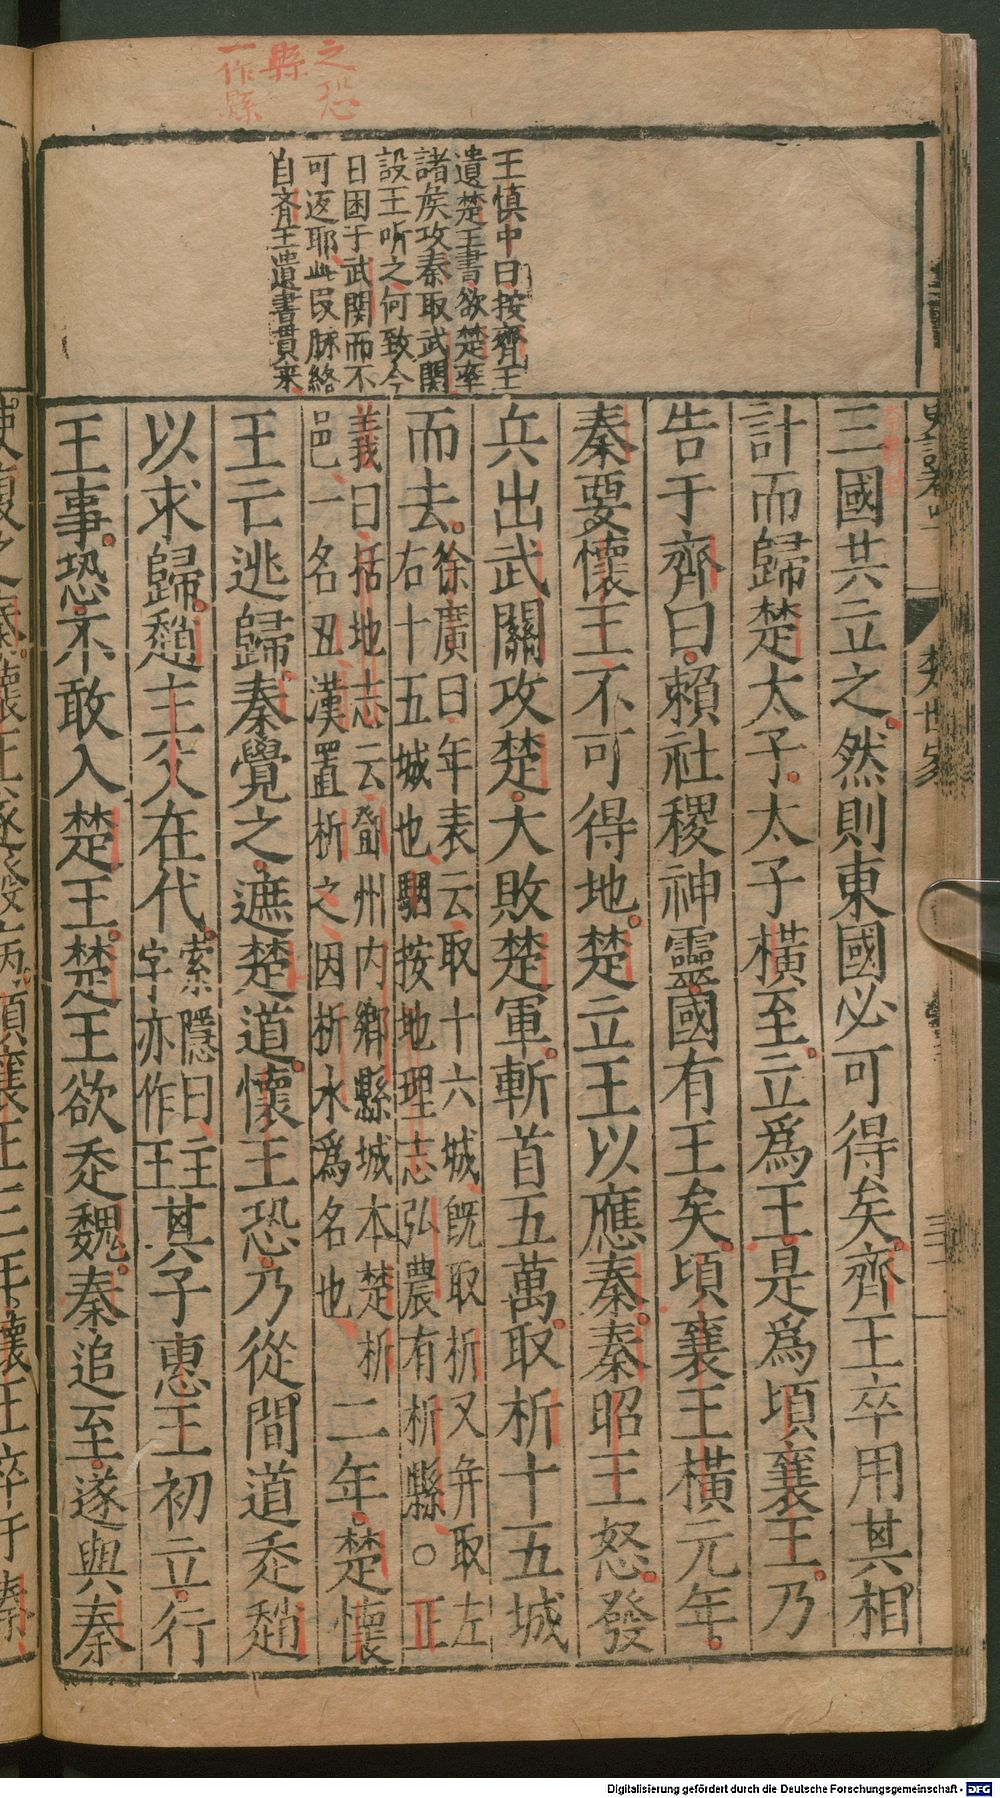 之恐
縣
一作縣
王慎中曰按齊王
遺楚王書欲楚率
諸侯攻秦取武関
設王听之何致今
日困于武関而不
可返耶此叚脉絡
自齐王遺書貫来
三國共立之然則東國必可得矣齊王卒用其相
計而歸楚太子太子橫至立爲王是爲頃襄王乃
告于齊曰賴社稷神靈國有王矣頃襄王橫元年
秦要懷王不可得地楚立王以應秦秦昭王怒發
兵出武關攻楚大敗楚軍斬首五萬取析十五城
而去徐廣曰年表云取十六城旣取析又并取左
右十五城也駰按地理志弘農有析縣○正
義曰括地志云鄧州内鄉縣城本楚析
邑一名丑漢置析之因析水爲名也二年楚懷
王亡逃歸秦覺之遮楚道懷王恐乃從間道走趙
以求歸趙主父在代索隱曰主
字亦作王其子惠王初立行
王事恐不敢入楚王楚王欲走魏秦追至遂與秦
楚世家
Digitalisierung gefördert durch die Deutsche Forschungsgemeinschaft - DFG